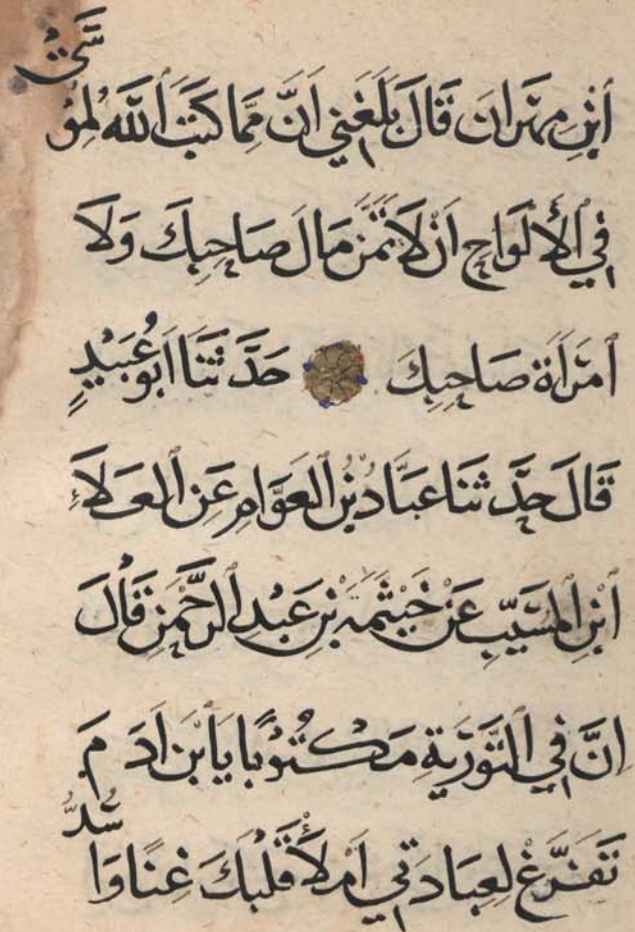 ٱبْنِ مِهْرَانَ قَالَ بَلَغَنِي أَنَّ مِمَّا كَتَبَ ٱللَّهُ لِمُوسَىٰ
فِي ٱلْأَلْوَاحِ أَنْ لَا تَمَنَّ مَالَ صَاحِبِكَ وَلَا
ٱمْرَأَةَ صَاحِبِكَ حَدَّثَنَا أَبُو عُبَيْدٍ
قَالَ حَدَّثَنَا عَبَّادُ بْنُ ٱلْعَوَّامِ عَنِ ٱلْعَلَاءِ
ٱبْنِ ٱلْمُسَيَّبِ عَنْ خَيْثَمَةَ بْنِ عَبْدِ ٱلرَّحْمَنِ قَالَ
إِنَّ فِي ٱلتَّوْرَيةِ مَكْتُوبًا يَا ٱبْنَ آدَمَ
تَفَرَّغْ لِعِبَادَتِي أَمْلَأْ قَلْبَكَ غِنًا وَأَسُدُّ